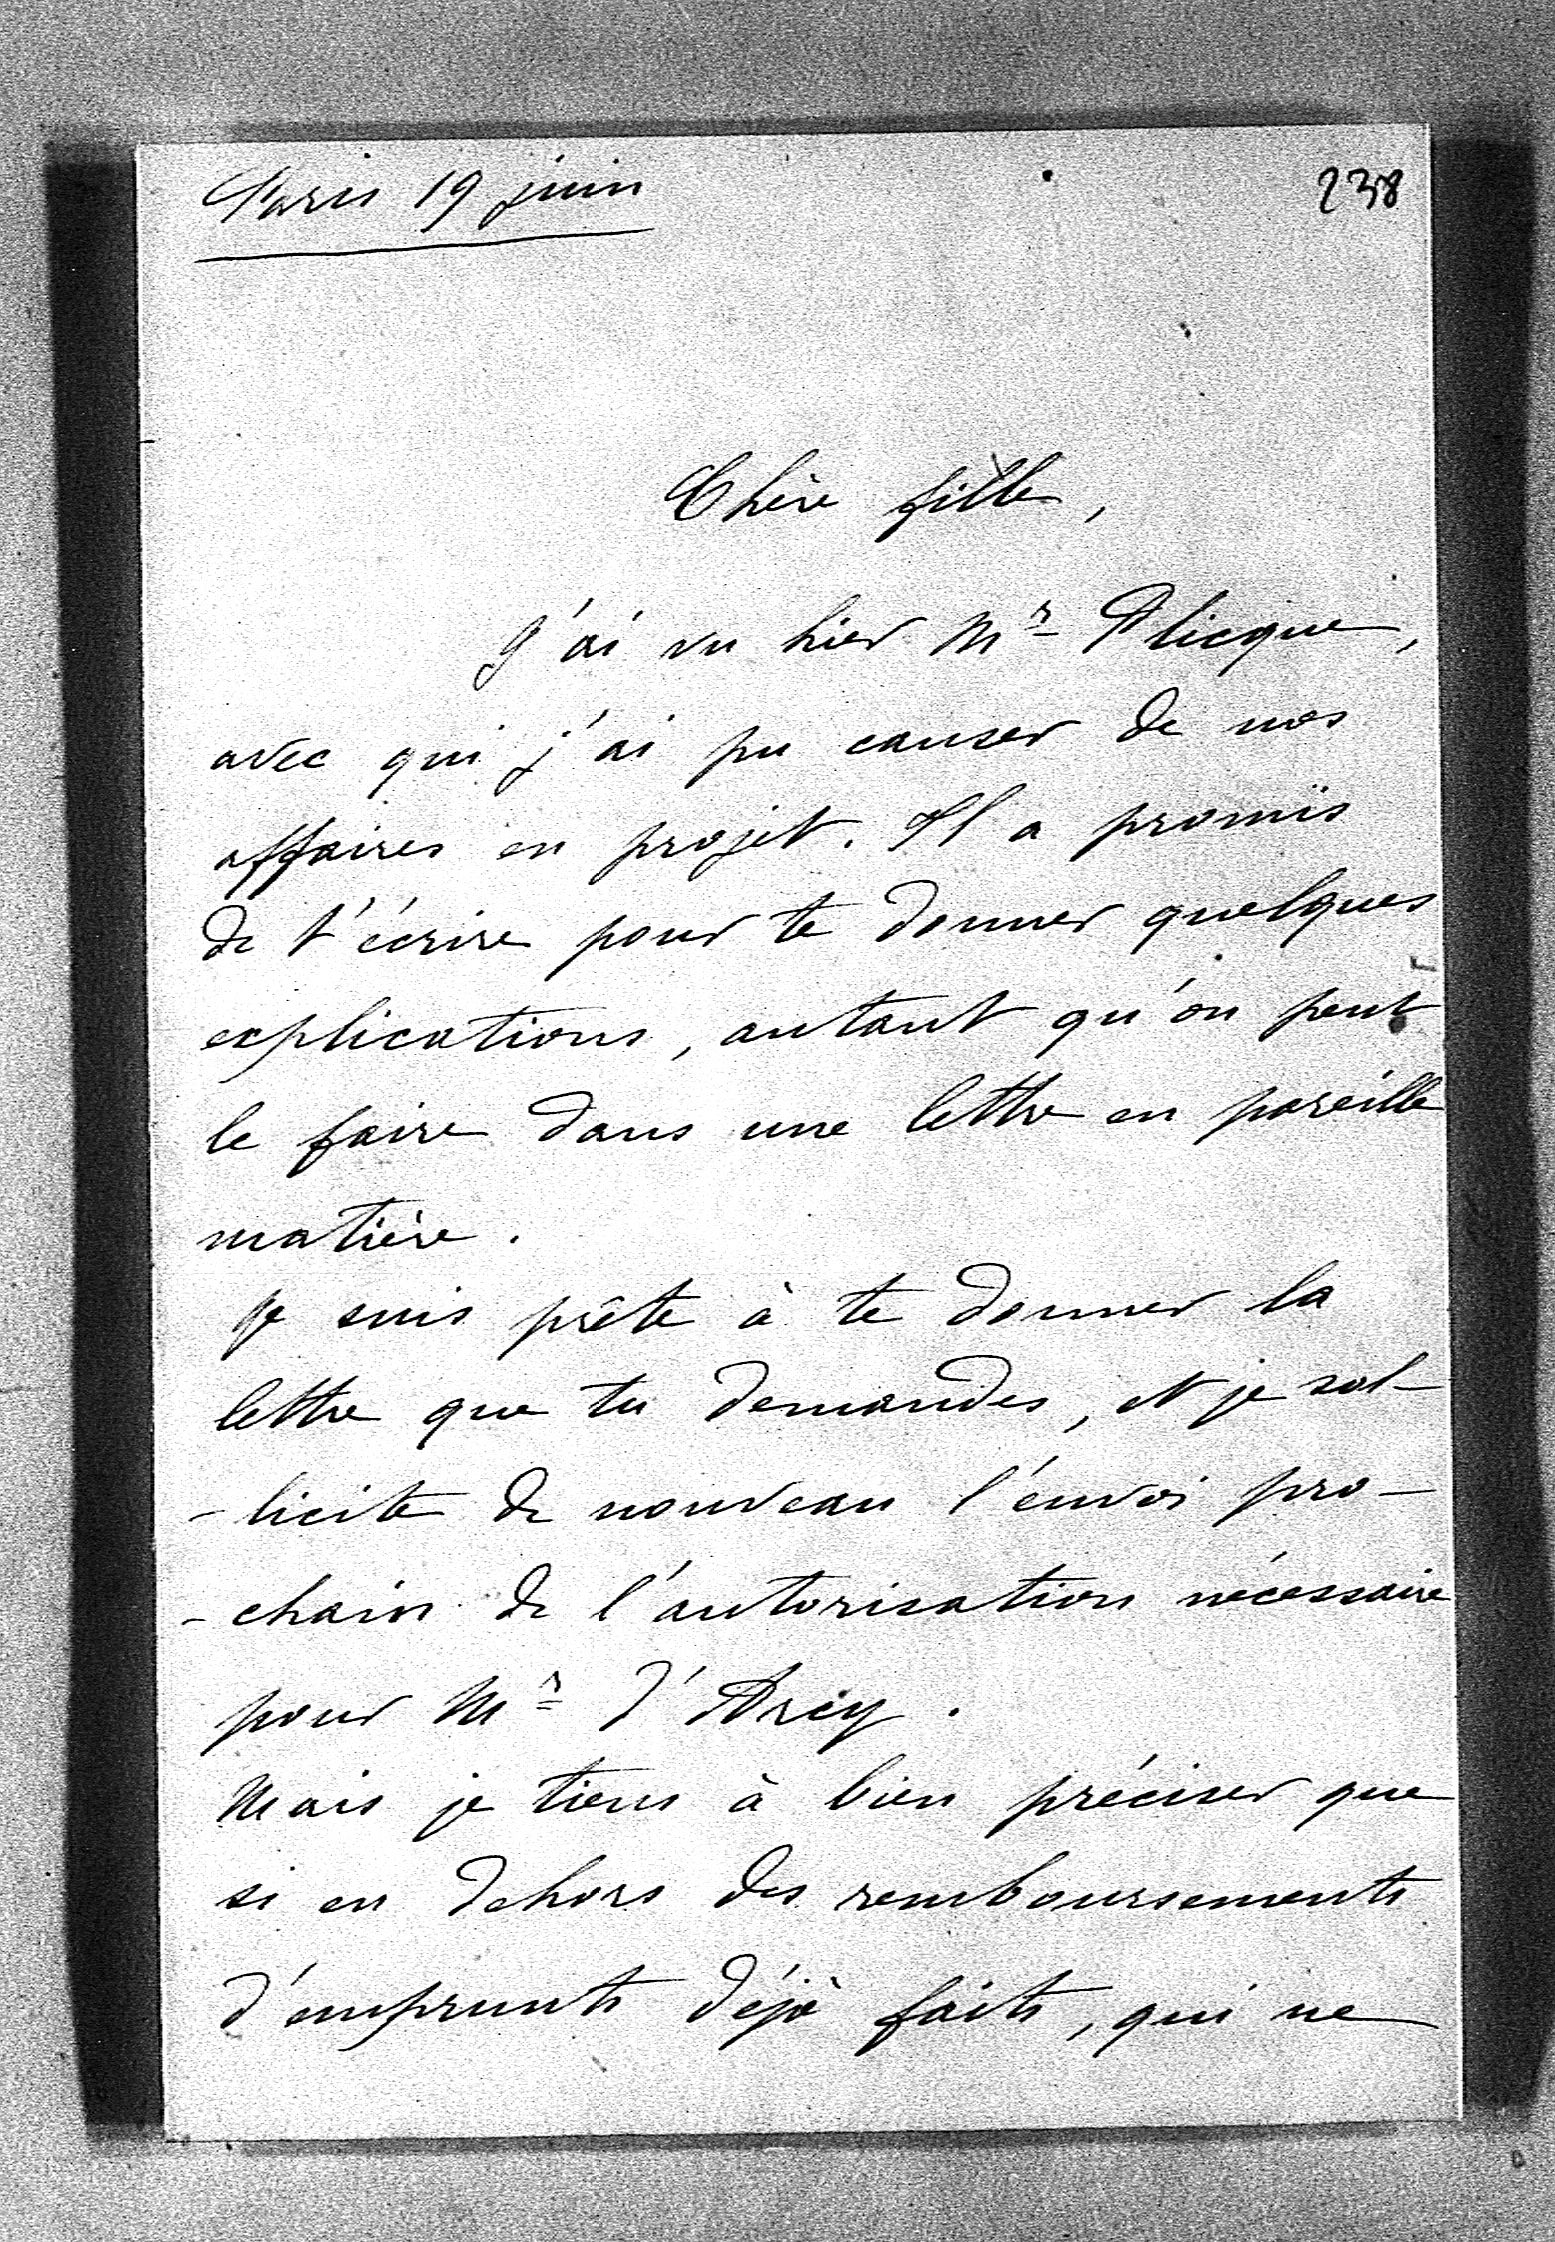 Paris 19 juin
238
Chère fille,
J'ai vu hier Mr Plicque,
avec qui j'ai pu causer de nos
affaires en projet. Il a promis
de t'écrire pour te donner quelques
explications, autant qu'on peut
le faire dans une lettre en pareille
matière.
Je suis prête à te donner la
lettre que tu demandes, et je sol-
-licite de nouveau l'envoi pro-
-chain de l'autorisation nécessaire
pour Mr d'Arcy.
Mais je tiens à bien préciser que
si en dehors des remboursements
d'emprunts déjà faits, qui ne